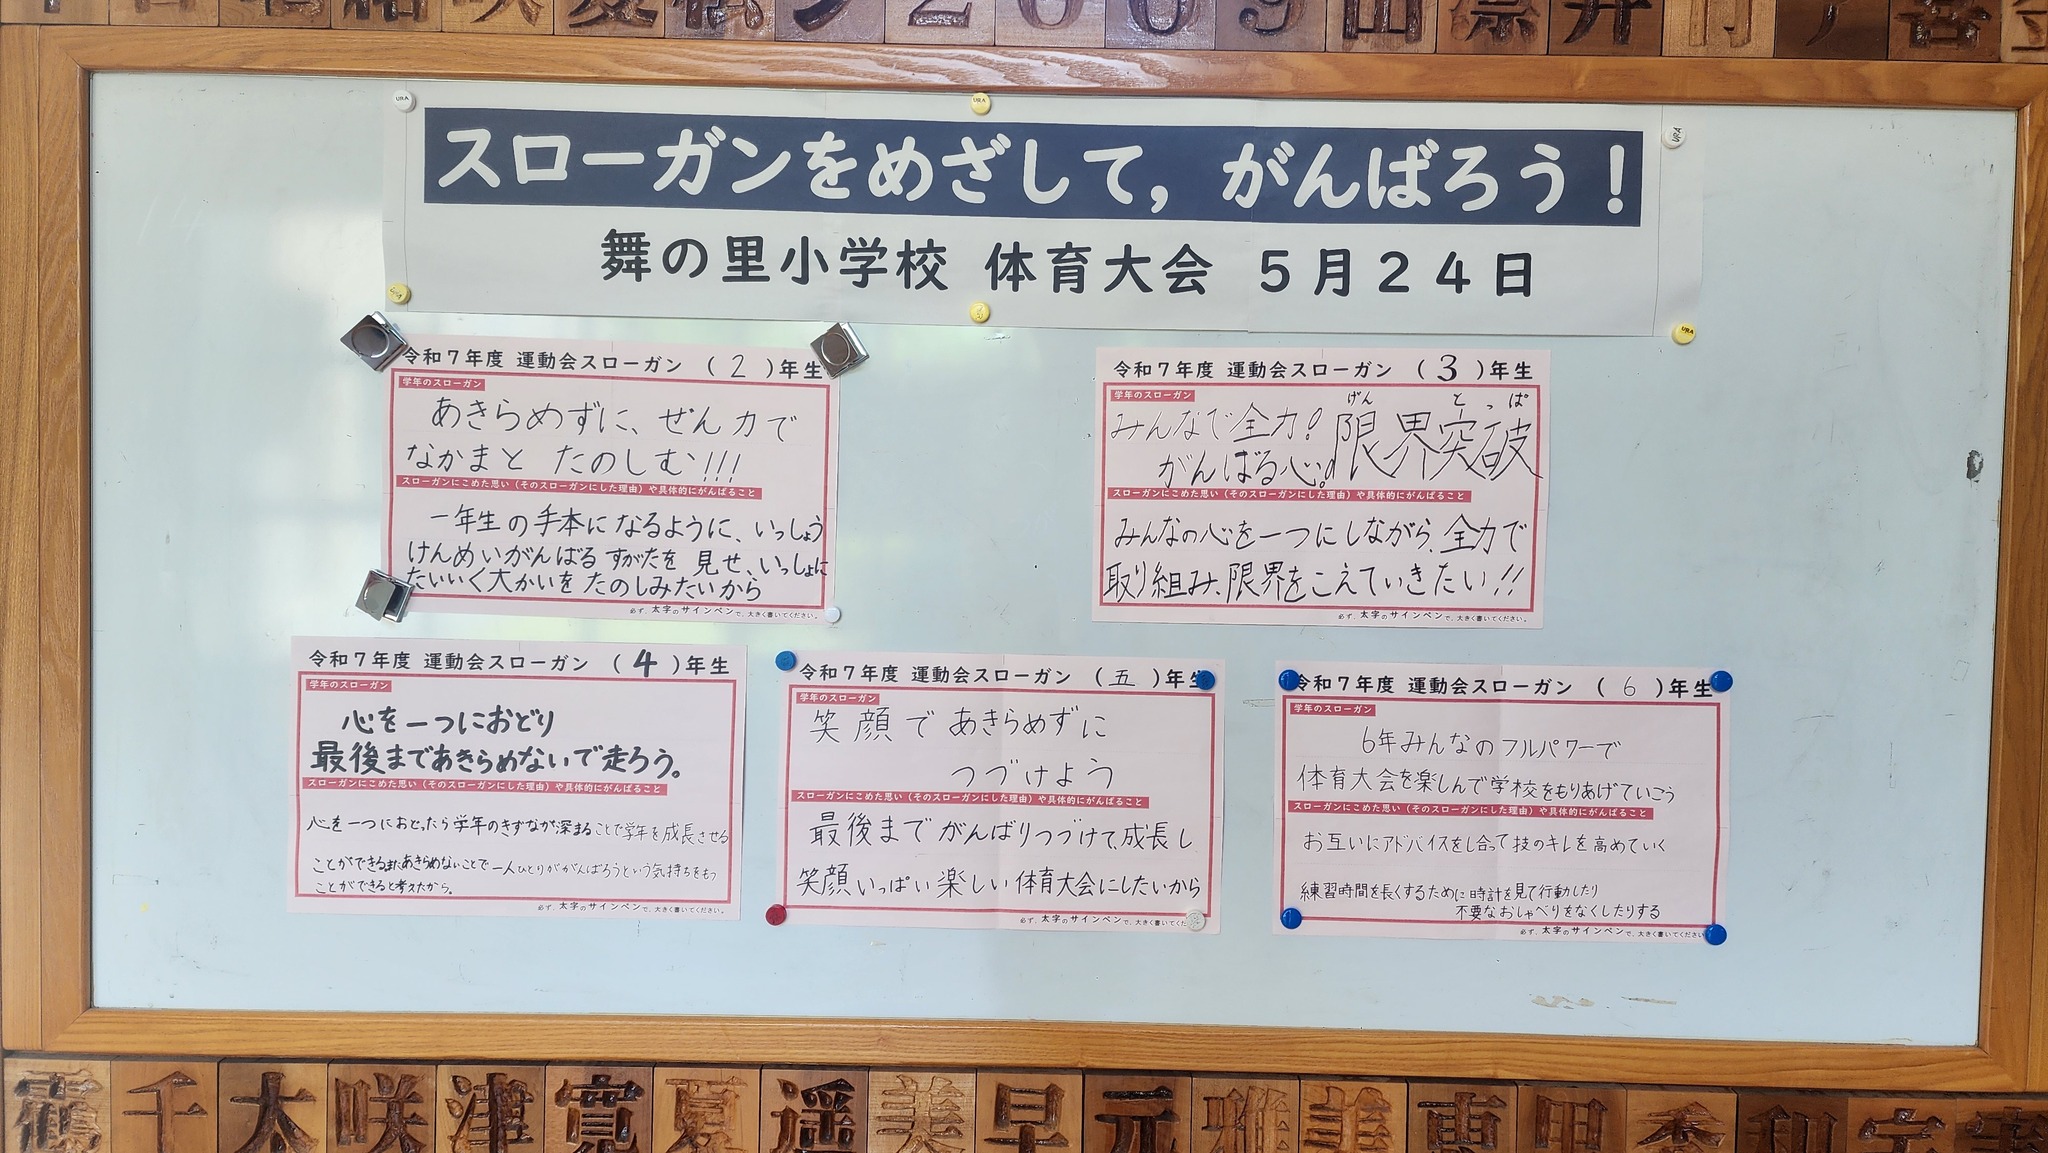 2009
スローガンをめざして，がんばろう！
舞の里小学校 体育大会 5月24日
令和7年度 運動会スローガン （ 2 ）年生
学年のスローガン
あきらめずに、ぜん力で
なかまと たのしむ!!!
スローガンにこめた思い（そのスローガンにした理由）や具体的にがんばること
一年生の手本になるように、いっしょう
けんめいがんばるすがたを見せ、いっしょに
たいいく大かいをたのしみたいから
必ず、太字のサインペンで、大きく書いてください。
令和7年度 運動会スローガン （ 3 ）年生
学年のスローガン
げん とっぱ
みんなで全力!限界突破
がんばる心。
スローガンにこめた思い（そのスローガンにした理由）や具体的にがんばること
みんなの心を一つにしながら、全力で
取り組み、限界をこえていきたい!!
必ず、太字のサインペンで、大きく書いてください。
令和7年度 運動会スローガン （ 4 ）年生
学年のスローガン
心を一つにおどり
最後まであきらめないで走ろう。
スローガンにこめた思い（そのスローガンにした理由）や具体的にがんばること
心を一つにおどったら学年のきずなが深まることで学年を成長させる
ことができるまたあきらめないことで一人ひとりががんばろうという気持ちをもつ
ことができると考えたから。
必ず、太字のサインペンで、大きく書いてください。
令和7年度 運動会スローガン （ 五 ）年生
学年のスローガン
笑顔であきらめずに
つづけよう
スローガンにこめた思い（そのスローガンにした理由）や具体的にがんばること
最後までがんばりつづけて、成長し
笑顔いっぱい楽しい体育大会にしたいから
必ず、太字のサインペンで、大きく書いてくだ
令和7年度 運動会スローガン （ 6 ）年生
学年のスローガン
6年みんなのフルパワーで
体育大会を楽しんで学校をもりあげていこう
スローガンにこめた思い（そのスローガンにした理由）や具体的にがんばること
お互いにアドバイスをし合って技のキレを高めていく
練習時間を長くするために時計を見て行動したり
不要なおしゃべりをなくしたりする
必ず、太字のサインペンで、大きく書いてください
千太咲津寛夏遥美早元雅美恵甲香和宏